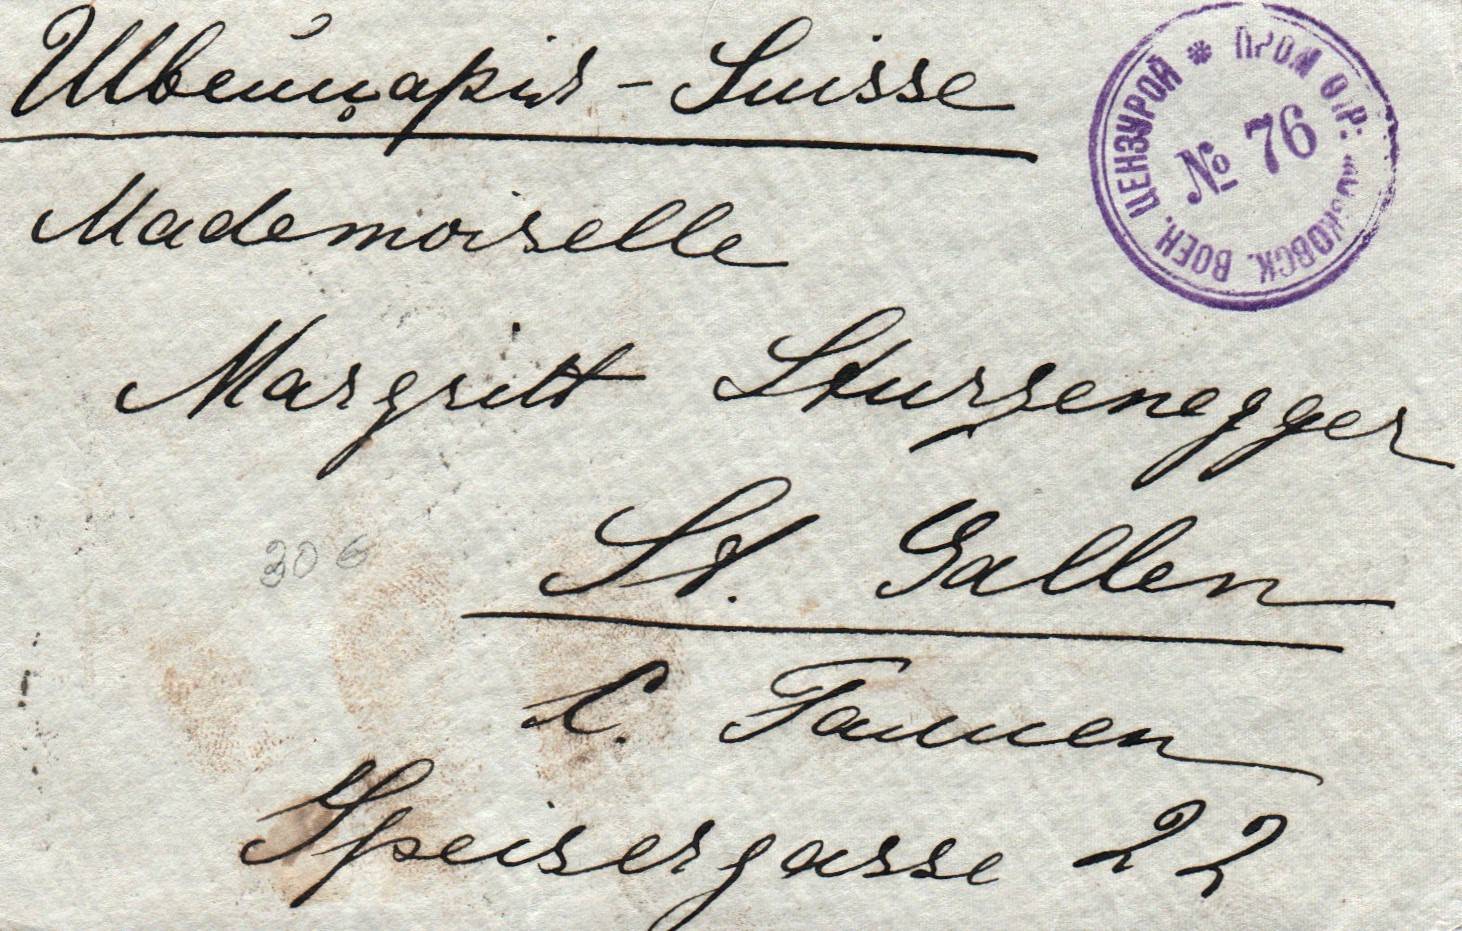 Швейцарія - Suisse
Mademoiselle
Margritt Sturzenegger
St. Gallen
z. Tannen
Speisergasse 22
30 6
ПРОСМОТР. МОСКОВСК. ВОЕН. ЦЕНЗУРОЙ
№ 76